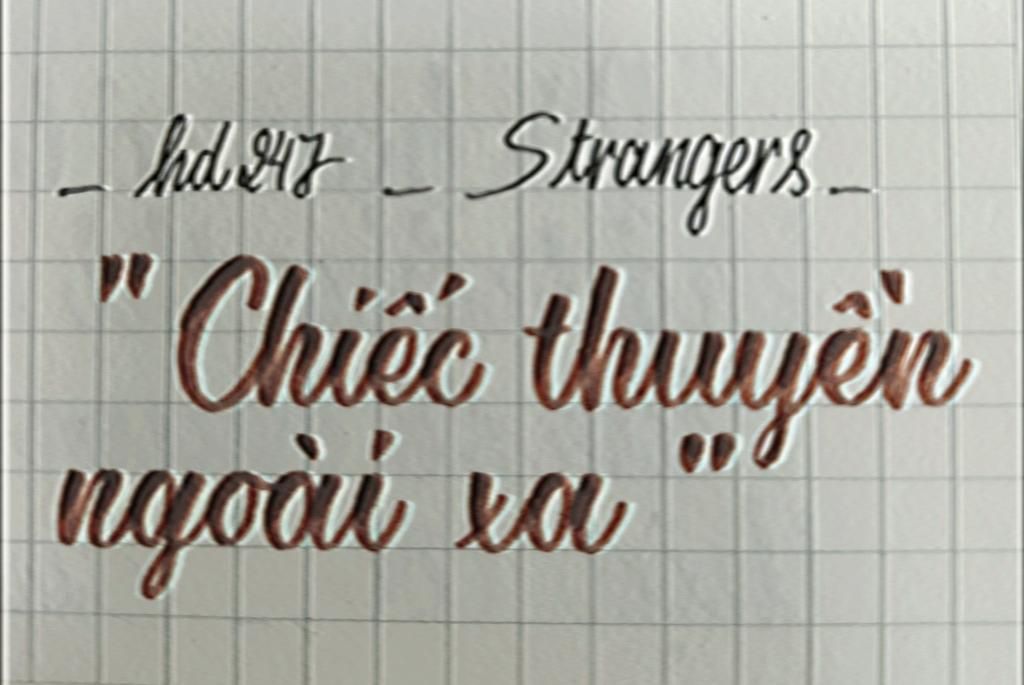 _ hd247 _ Strangers _
" Chiếc thuyền
ngoài xa "